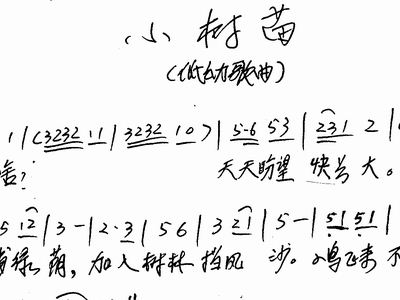 小树苗
(低幼歌曲)
1 | (3232 11 | 3232 10) | 5·6 53 | 231 2 |
啥? 天天盼望 快长大。
5 12 | 3 - | 2·3 | 56 | 3 21 | 5 - | 51 51 |
绿荫, 加入树林 挡风沙。小鸟飞来不